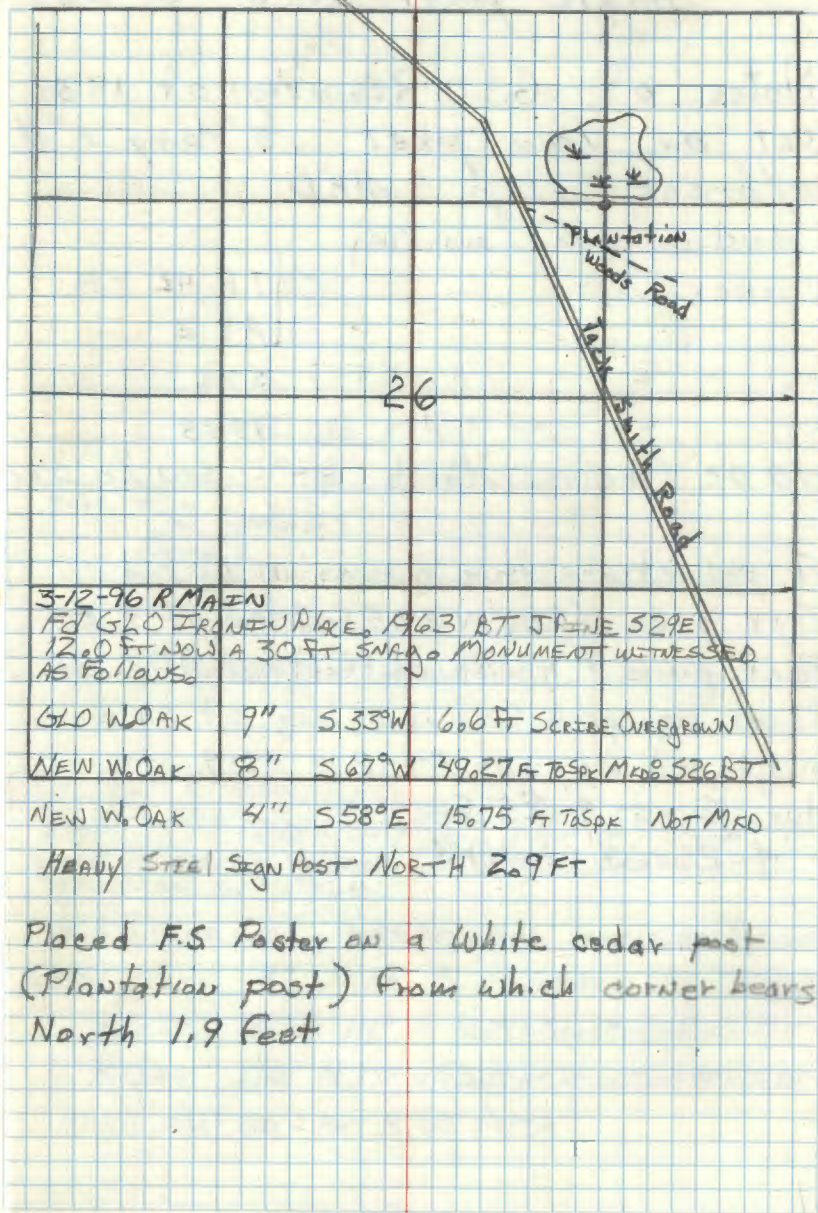 Plantation
Woods Road
Jack Smith Road
26
3-12-96 R MAIN
Fd GLO IRON IN PLACE. 1963 BT JPINE S29E
12.0 FT NOW A 30 FT SNAG. MONUMENT WITNESSED
AS FOLLOWS.
GLO W.OAK 9" S 33°W 6.6 FT SCRIBE OVERGROWN
NEW W.OAK 8" S 67°W 49.27 Ft TO SPK MKD: S26BT
NEW W.OAK 4" S58°E 15.75 Ft TO SPK NOT MKD
HEAVY STEEL SIGN POST NORTH 2.9 FT
Placed F.S Poster on a White cedar post
(Plantation post) from which corner bears
North 1.9 feet